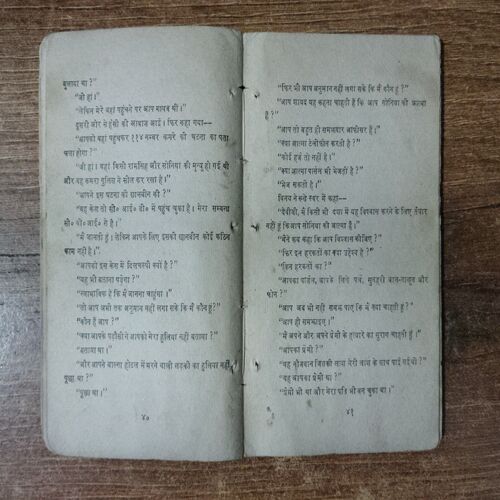 बुलाया था ?"
"जी हां ।"
"लेकिन मेरे वहां पहुंचने पर आप गायब थीं ।"
दूसरी ओर से हंसी की आवाज आई । फिर कहा गया—
"आपको वहां पहुंचकर ११४ नम्बर कमरे की घटना का पता
चला होगा ?"
"जी हां । वहां किसी रामसिंह और सोनिया की मृत्यु हो गई थी
और वह कमरा पुलिस ने सील कर रखा है ।"
"आपने इस घटना की छानबीन की ?"
"यह केस तो सी० आई० डी० में पहुंच चुका है । मेरा सम्बन्ध
सी० बी० आई० से है ।"
"मैं जानती हूं । लेकिन आपके लिए इसकी छानबीन कोई कठिन
काम नहीं है ।"
"आपको इस केस में दिलचस्पी क्यों है ?"
"यह भी बताना पड़ेगा ?"
"स्वाभाविक है कि मैं जानना चाहूंगा ।"
"तो आप अभी तक अनुमान नहीं लगा सके कि मैं कौन हूं ?"
"कौन हैं आप ?"
"क्या आपके पड़ौसी ने आपको मेरा हुलिया नहीं बताया ?"
"बताया था ।"
"और आपने वाल्गा होटल में मरने वाली लड़की का हुलिया नहीं
पूछा था ?"
"पूछा था ।"
४०
"फिर भी आप अनुमान नहीं लगा सके कि मैं कौन हूं ?"
"आप शायद यह कहना चाहती हैं कि आप सोनिया की आत्मा
हैं ?"
"आप तो बहुत ही समझदार आफीसर हैं ।"
"क्या आत्मा टेलीफोन करती है ?"
"कोई हर्ज तो नहीं है ।"
"क्या आत्मा पार्सल भी भेजती है ?"
"भेज सकती है ।"
विनय ने रूखे स्वर में कहा—
"देवीजी, मैं किसी भी दशा में यह विश्वास करने के लिए तैयार
नहीं हूं कि आप सोनिया की आत्मा हैं ।"
"मैंने कब कहा कि आप विश्वास कीजिए ?"
"फिर इन हरकतों का क्या उद्देश्य है ?"
"किन हरकतों का ?"
"आपका पार्सल, आपके लिखे पत्र, सुनहरी बाल-नाखून और
फोन ?"
"आप अब भी नहीं समझ पाए कि मैं क्या चाहती हूं ?"
"आप ही समझाइए ।"
"मैं अपने और अपने प्रेमी के हत्यारे का सुराग चाहती हूं ।"
"आपका प्रेमी ?"
"वह नौजवान जिसकी लाश मेरी लाश के साथ पाई गई थी ।"
"वह आपका प्रेमी था ?"
"प्रेमी भी था और मेरा पति भी बन चुका था ।"
४१